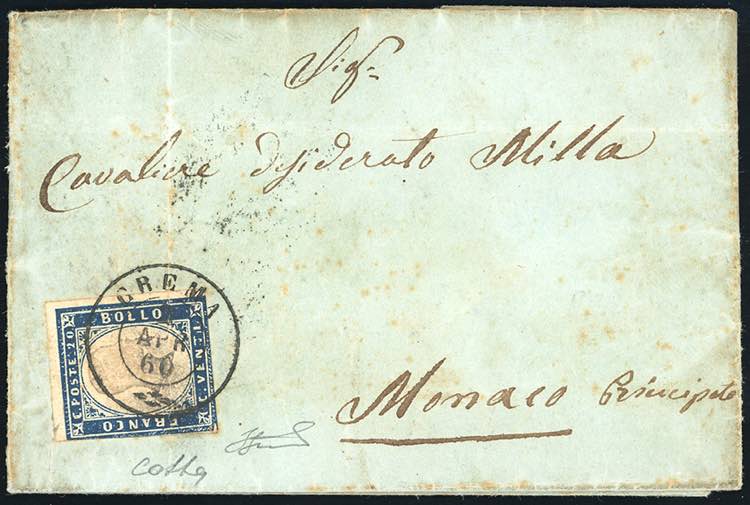 Sigr
Cavaliere Desiderato Milla
Monaco Principato
CREMA
APR
60
C. POSTE 20
BOLLO
C. VENTI
FRANCO